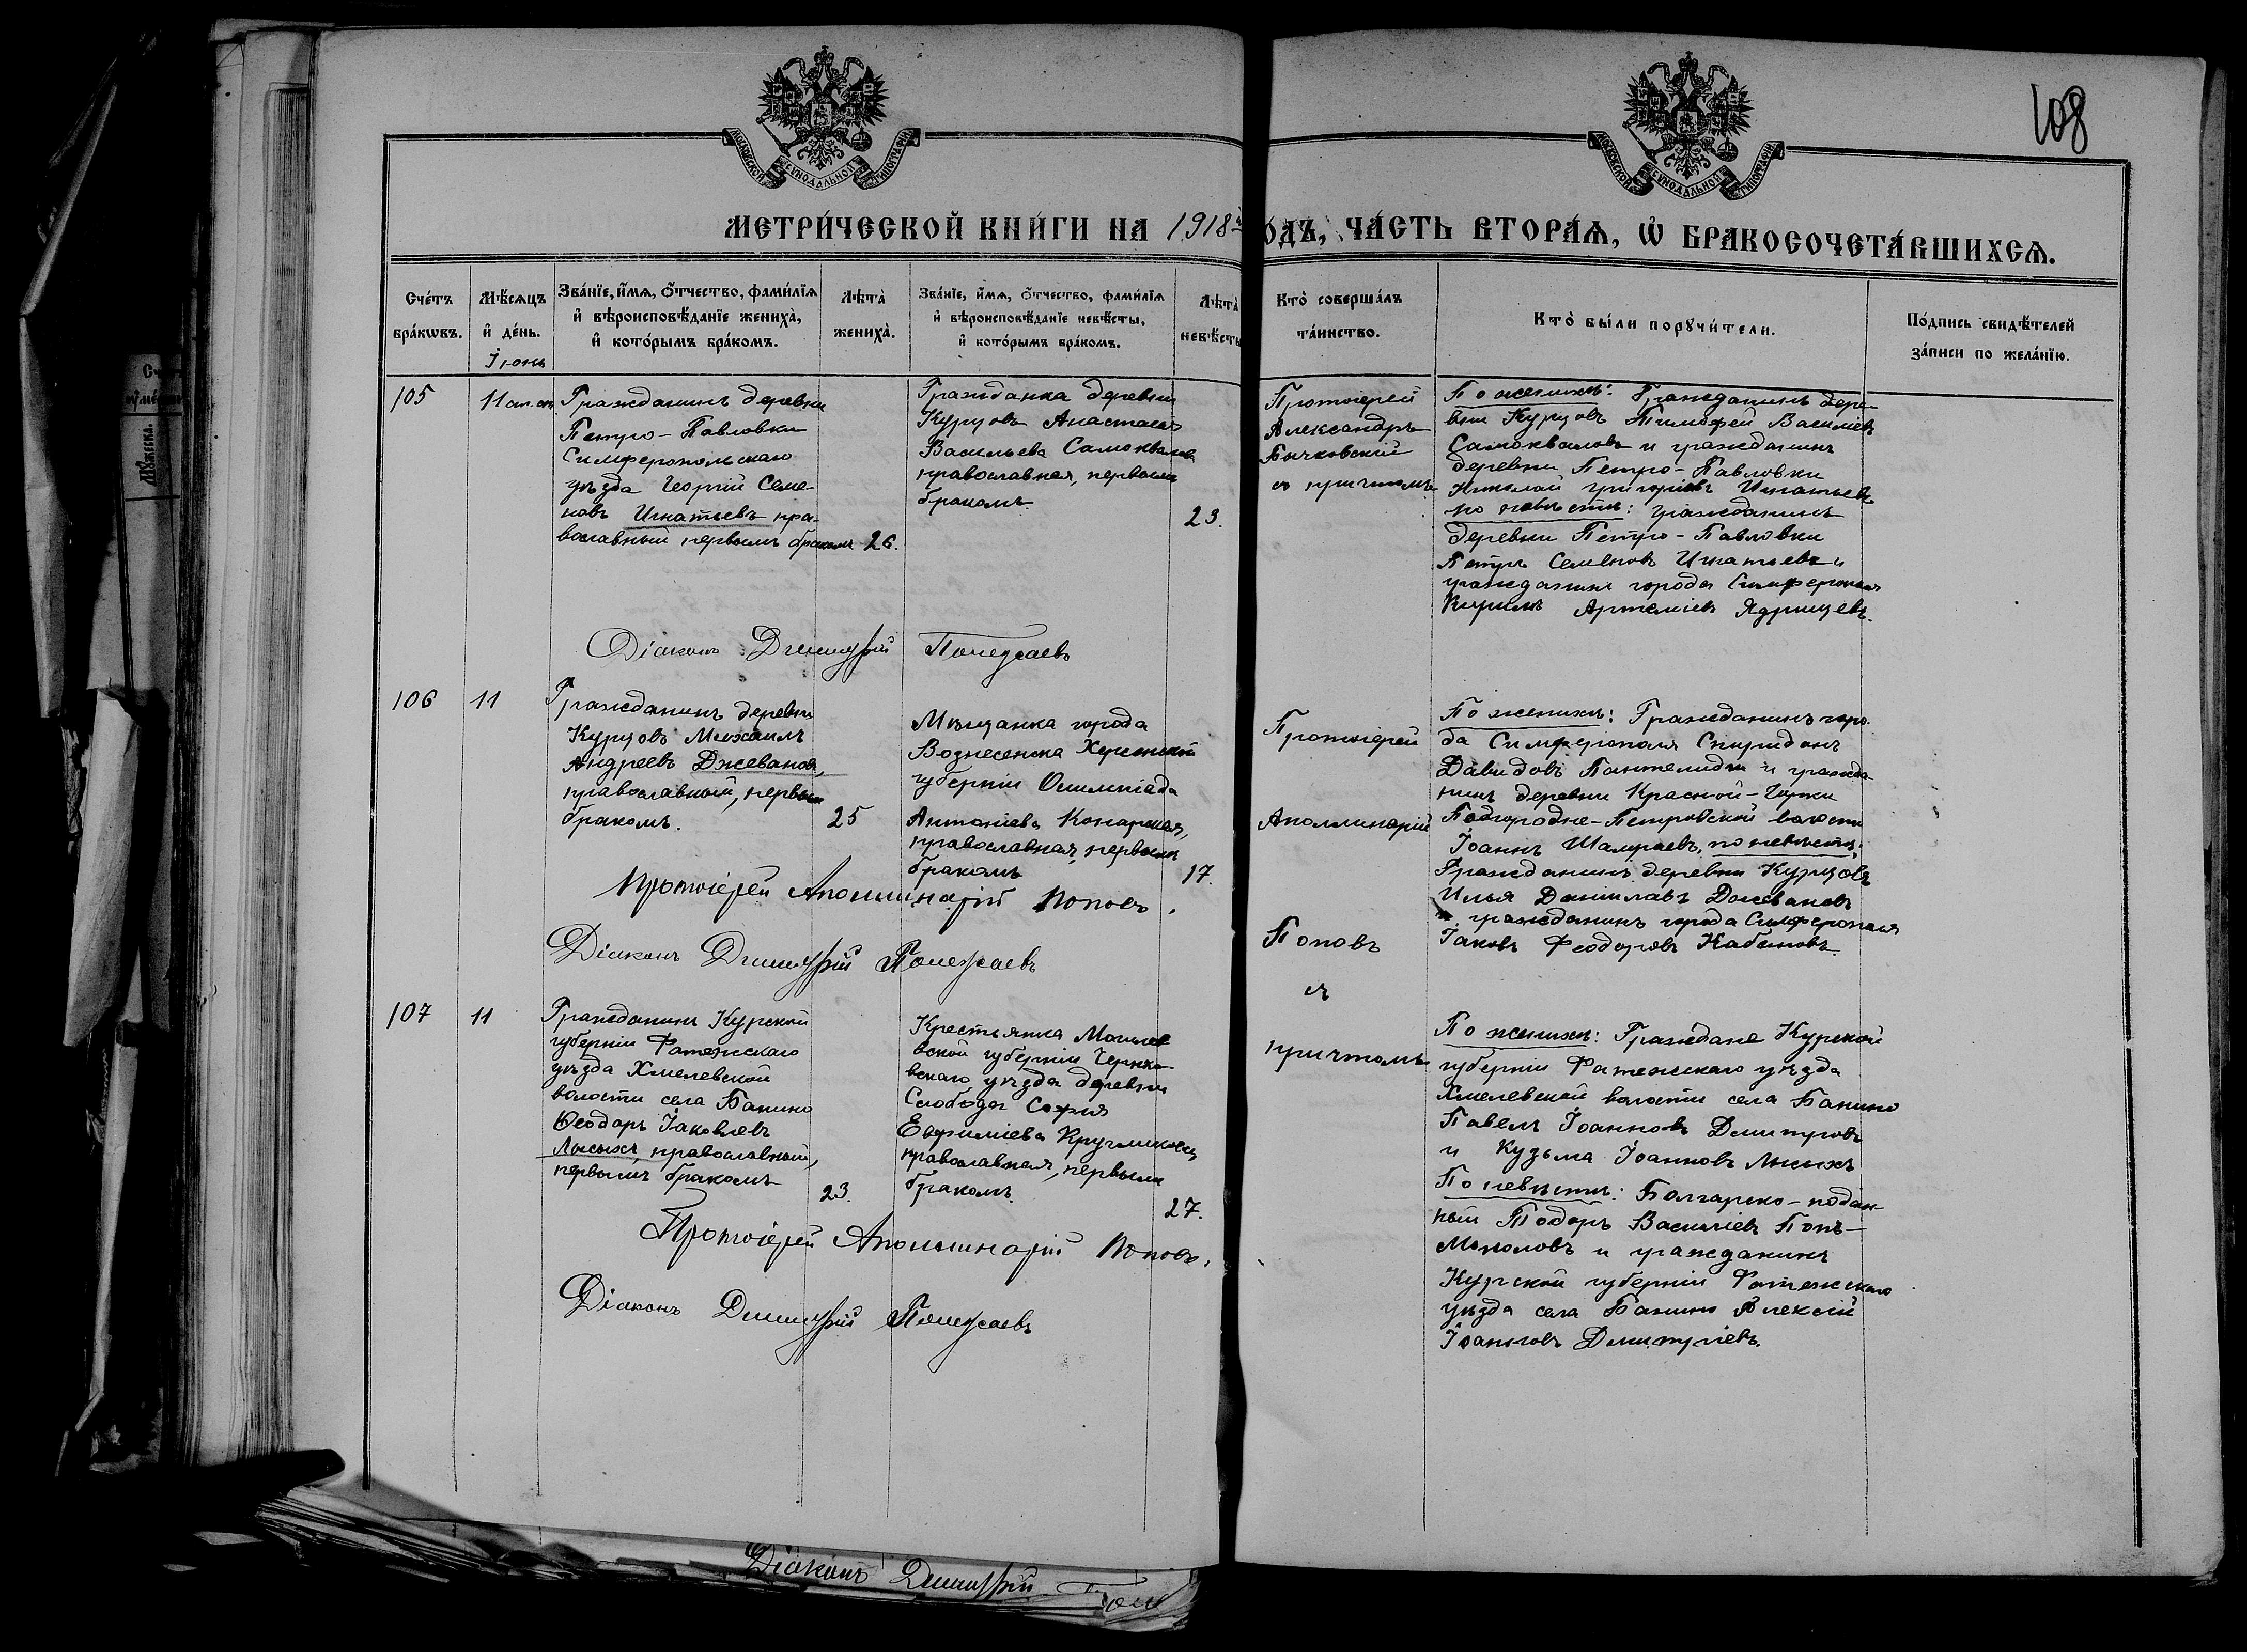 108
МОСКОВСКОЙ СУНОДАЛЬНОЙ ТИПОГРАФІИ
МОСКОВСКОЙ СУНОДАЛЬНОЙ ТИПОГРАФІИ
МЕТРИ́ЧЕСКОЙ КНИ́ГИ НА 1918й
О́ДЪ, ЧА́СТЬ ВТОРА́Ѧ, Ѡ҆ БРАКОСОЧЕТА́ВШИХСѦ.
Сче́тъ
бра́кѡвъ.
Мѣ́сѧцъ
и҆ де́нь.
Іюнь
Зва́нїе, и҆́мѧ, ѻ҆́тчество, фами́лїѧ
и҆ вѣроисповѣ́данїе жениха̀,
и҆ кото́рымъ бра́комъ.
Лѣта̀
жениха̀.
Зва́нїе, и҆́мѧ, ѻ҆́тчество, фами́лїѧ
и҆ вѣроисповѣ́данїе невѣ́сты,
и҆ кото́рымъ бра́комъ.
Лѣта̀
невѣ́сты
Кто̀ соверша́лъ
та́инство.
Кто̀ бы́ли порꙋчи́тели.
По́дпись свидѣ́телей
за́писи по жела́нїю.
105
11 ст. ст.
Гражданинъ деревни
Петро-Павловки
Симферопольскаго
уѣзда Георгій Семе-
новъ Игнатьевъ пра-
вославный первымъ бракомъ
26.
Гражданка деревни
Курцовъ Анастасія
Васильева Самохвалова
православная, первымъ
бракомъ.
23.
Протоіерей
Александръ
Бычковскій
съ причтомъ
По женихѣ: Гражданинъ дере-
вни Курцовъ Тимофей Василіевъ
Самохваловъ и гражданинъ
деревни Петро-Павловки
Николай Григоріевъ Игнатьевъ
по невѣстѣ: гражданинъ
деревни Петро-Павловки
Петръ Семеновъ Игнатьевъ и
гражданинъ города Симферополя
Кирилъ Артеміевъ Ядрицевъ.
Діаконъ Димитрій Полежаевъ
106
11
Гражданинъ деревни
Курцовъ Михаилъ
Андреевъ Джевановъ,
православный, первымъ
бракомъ.
25
Мѣщанка города
Вознесенска Херсонской
губерніи Олимпіада
Антоніева Конарская,
православная, первымъ
бракомъ
17.
Протоіерей
Аполлинарій
Поповъ
съ
причтомъ
По женихѣ: Гражданинъ горо-
да Симферополя Спиридонъ
Давидовъ Пантелиди и гражда-
нинъ деревни Красной-Горки
Подгородне-Петровской волости
Іоаннъ Шалраевъ, по невѣстѣ:
Гражданинъ деревни Курцовъ
Илья Даниловъ Джевановъ
и гражданинъ города Симферополя
Іаковъ Феодоровъ Кабановъ.
Протоіерей Аполлинарій Поповъ.
Діаконъ Димитрій Полежаевъ
107
11
Гражданинъ Курской
губерніи Фатежскаго
уѣзда Хмелевской
волости села Банино
Ѳеодоръ Іаковлевъ
Лысыхъ, православный,
первымъ бракомъ
23.
Крестьянка Могилев
вской губерніи Черико-
вскаго уѣзда деревни
Слобода Софія
Евфиміева
православная, первымъ
бракомъ.
27.
По женихѣ: Граждане Курской
губерніи Фатежскаго уѣзда
Хмелевской волости села Банино
Павелъ Іоанновъ Дмитровъ
и Кузьма Іоанновъ Лысыхъ
По невѣстѣ: Болгарско-подан-
ный Тодоръ Василіевъ Попъ-
Маноловъ и гражданинъ
Курской губерніи Фатежскаго
уѣзда села Банино Алексій
Іоанновъ Дмитріевъ.
Протоіерей Аполлинарій Поповъ.
Діаконъ Димитрій Полежаевъ
Діаконъ Димитрій